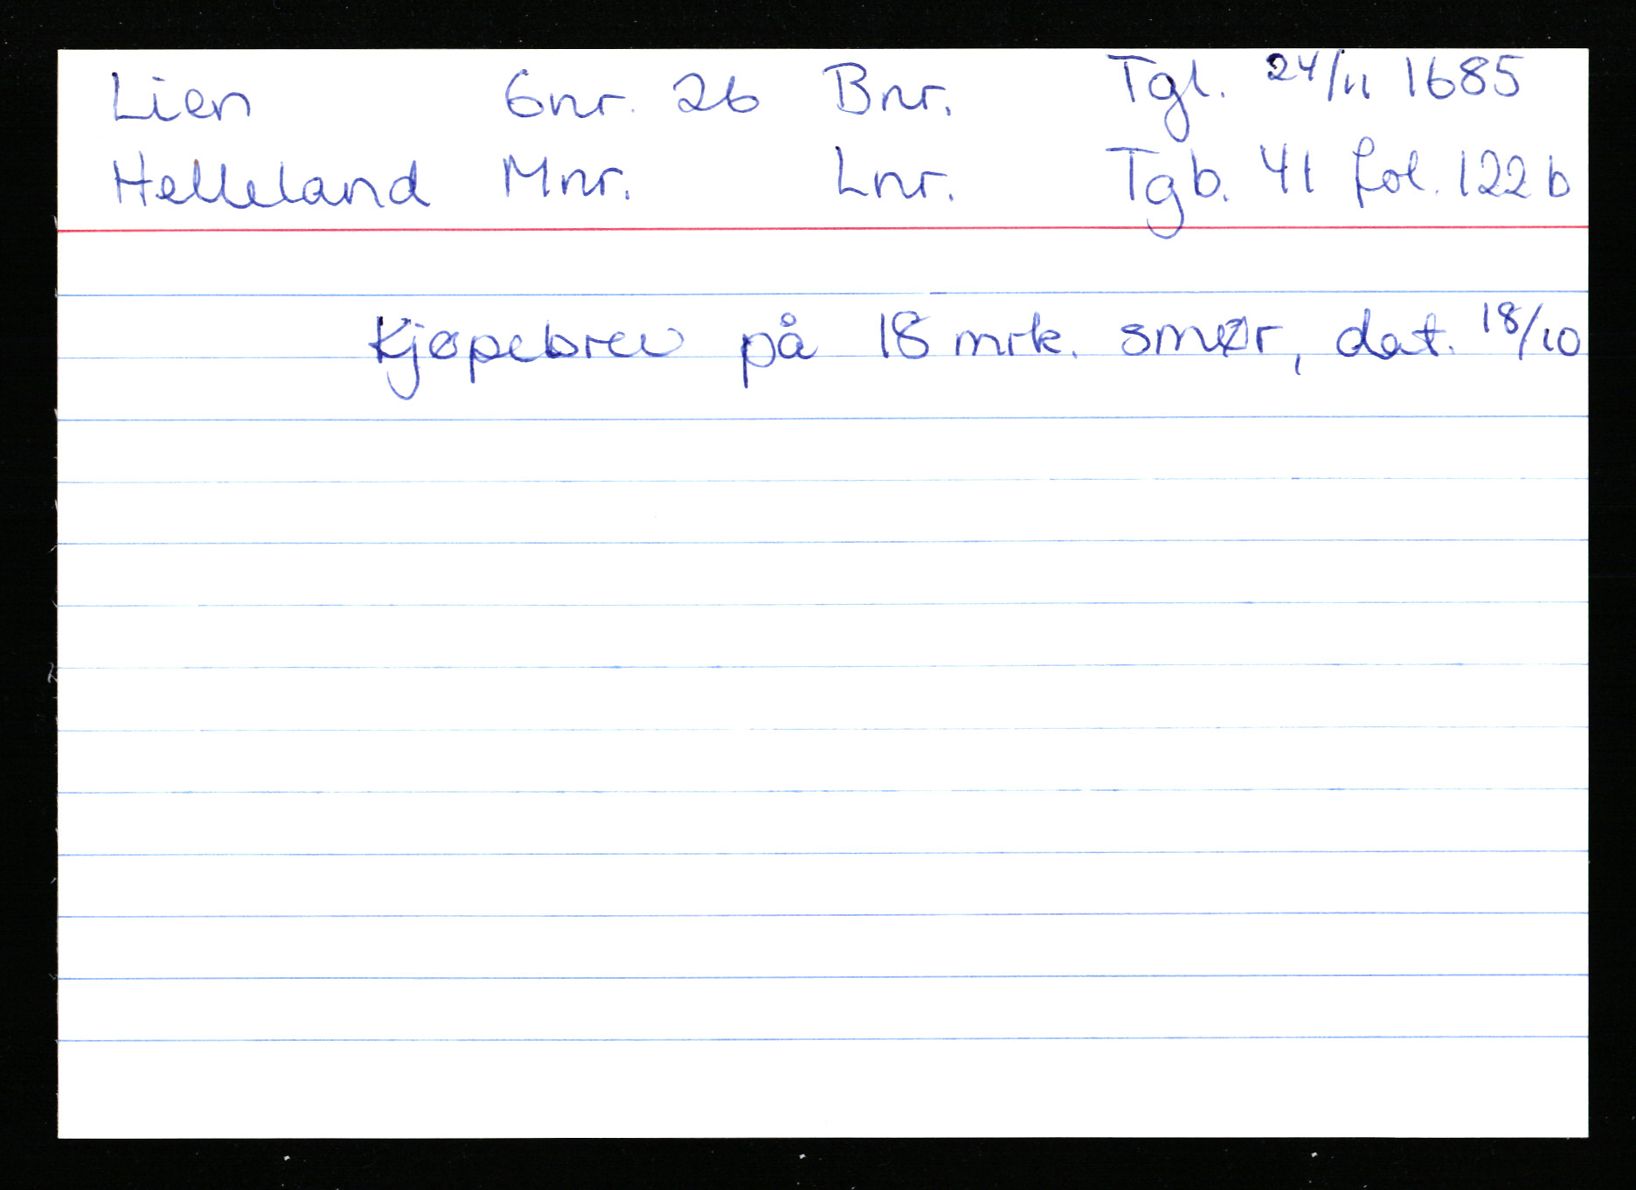 Lien Gnr. 26 Bnr. Tgl. 24/11 1685
Helleland Mnr. Lnr. Tgb. 41 fol. 122b
Kjøpebrev på 18 mrk. smør, dat. 18/10